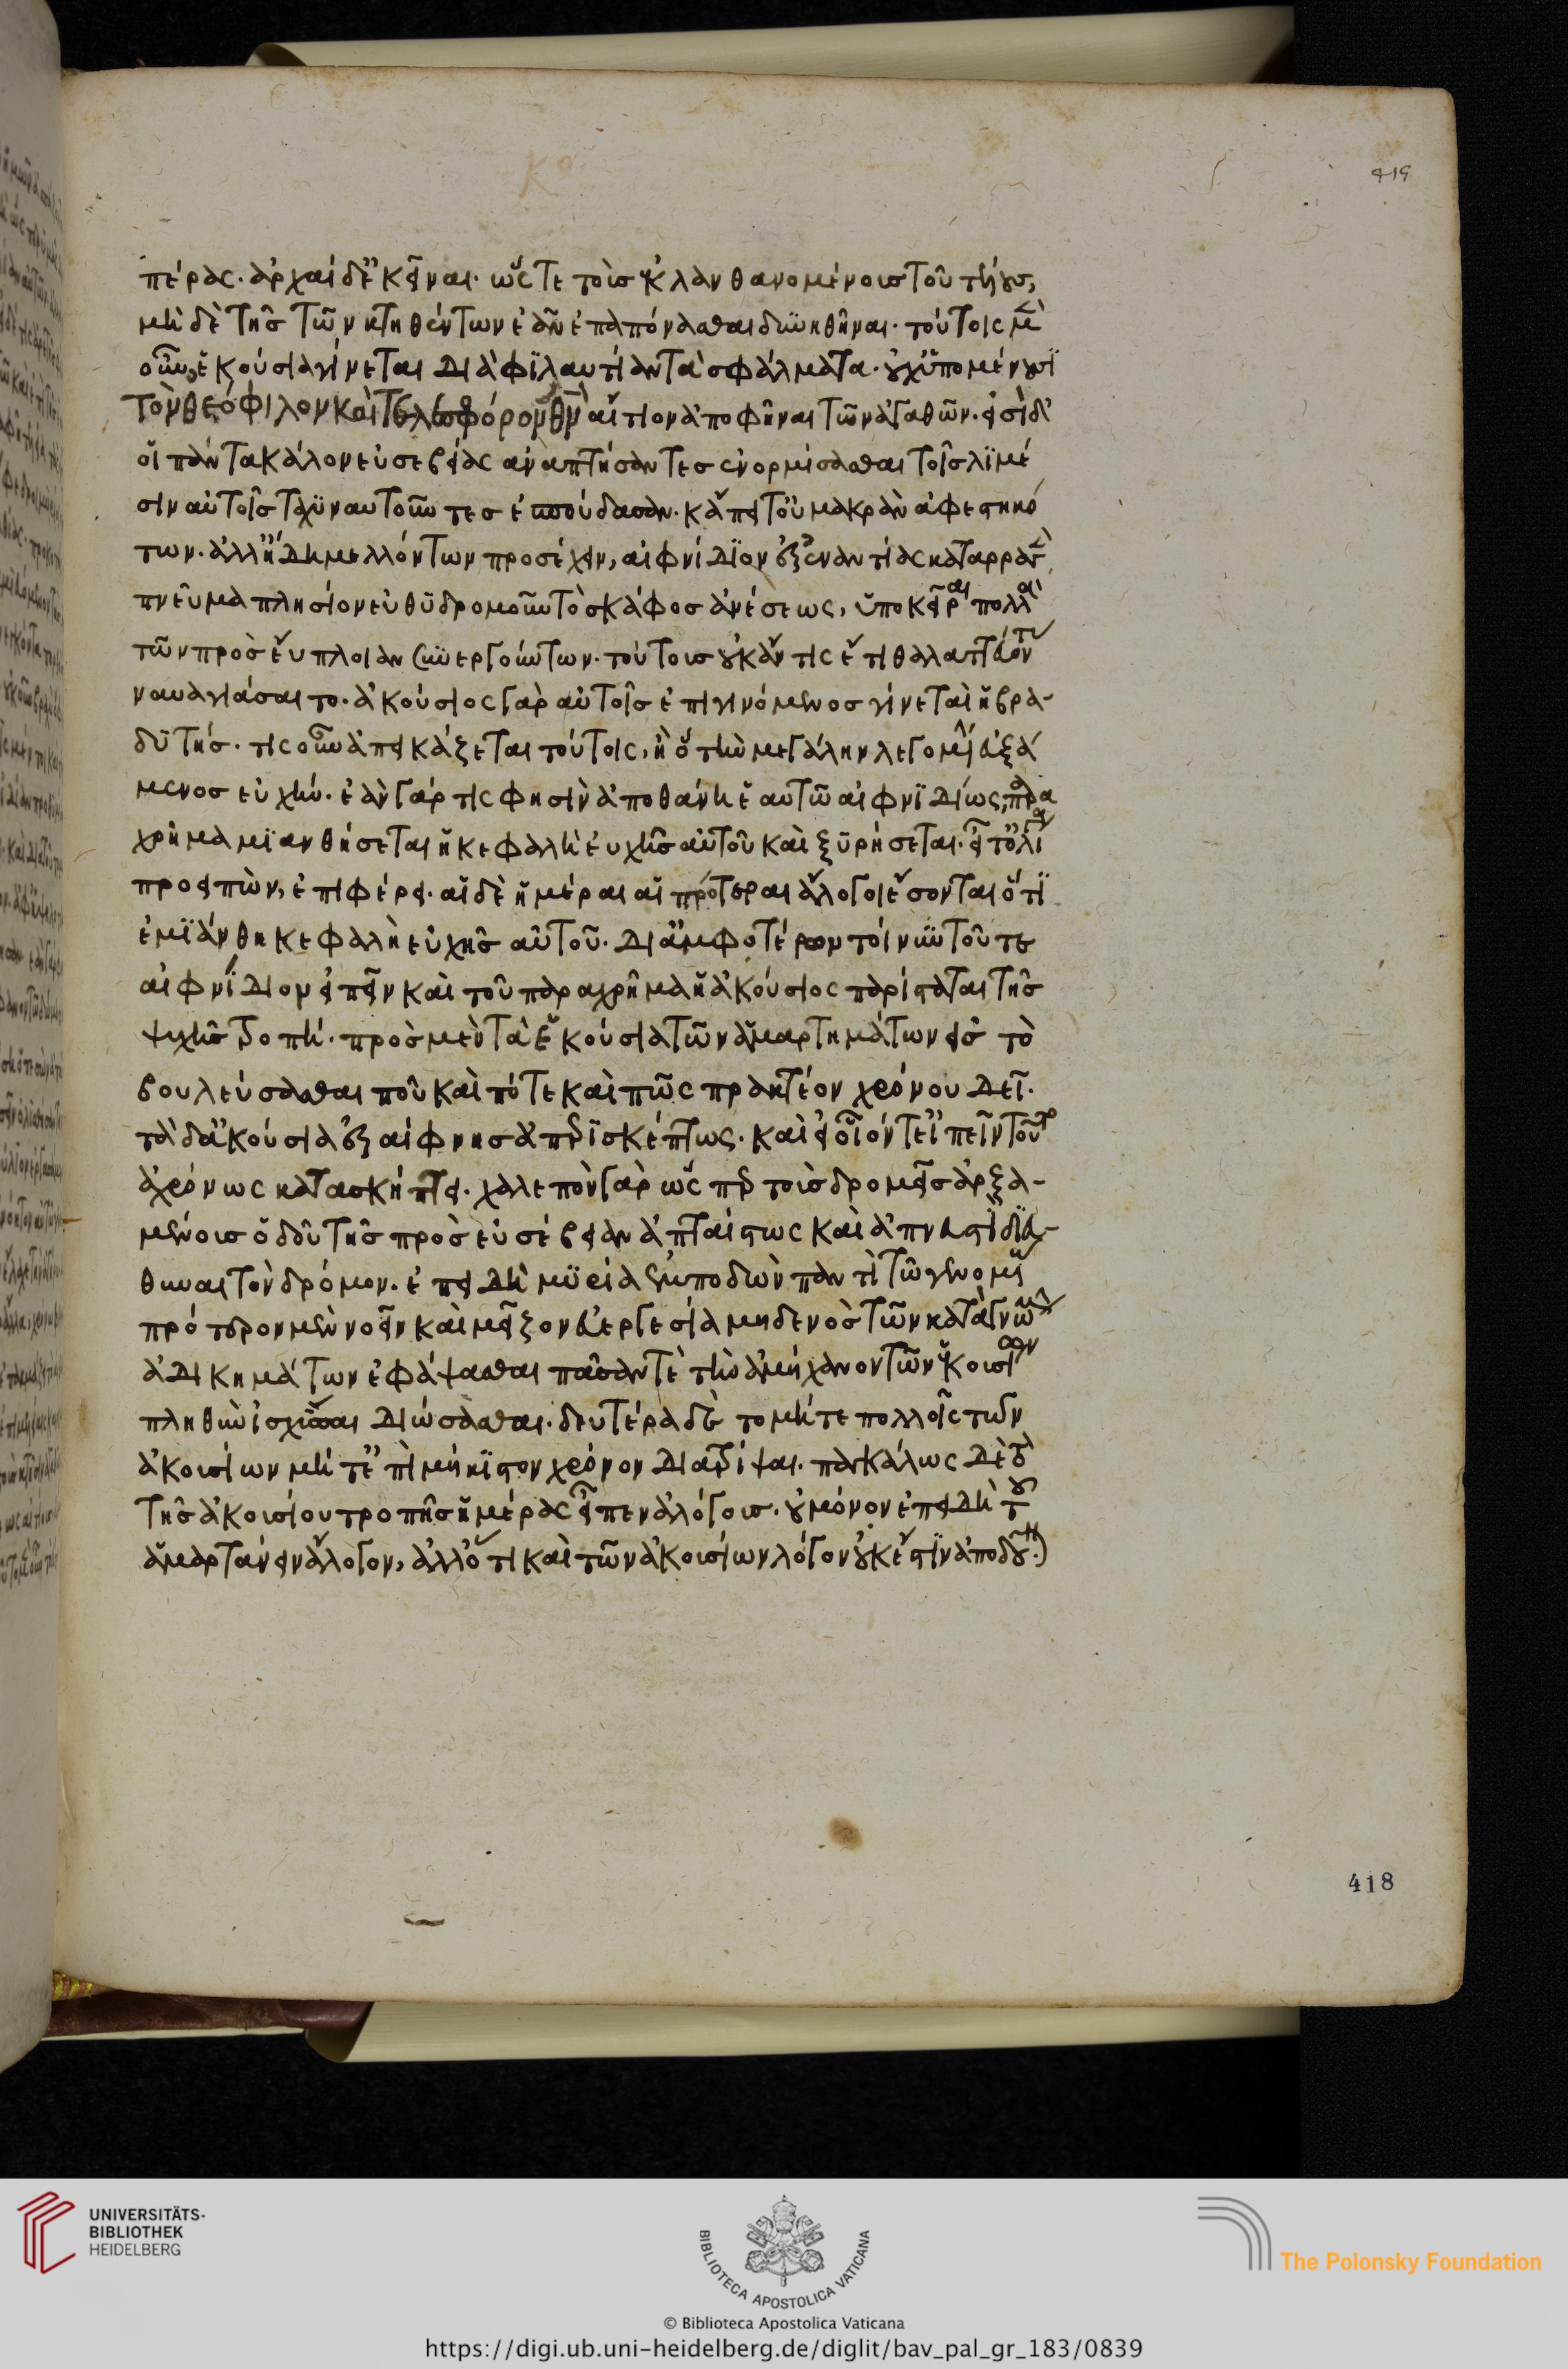 πέρας. ἀρχαὶ δ' ἐκεῖναι. ὥς τε τοῖς ἐκλανθανομένοις τοῦ τῆσ,
μὴ δὲ τῆς τῶν κτηθέντων ἐὰν ἐπαπόνασθαι διωκθῆναι. τούτοις μὲ
οὖν, ἑκούσια γίνεται διὰ φιλαυτίαν τὰ σφάλματα. οὐχ ὑπομένουσι
τὸν θεόφιλον καὶ τελεσφόρον θν αἴτιον ἀποφῆναι τῶν ἀγαθῶν. εἰσὶ δ'
οἳ πάντα κάλον εὐσεβείας ἀναπτήσαντες ἐνορμίσασθαι τοῖς λιμέ
σιν αὐτοῖς ταχυναυτοῦντες ἐσπούδασαν. κἄπει τοῦ μακρὰν ἀφεστηκό
των. ἀλλ' ἤδη μελλόντων προσέχειν, αἰφνίδιον ἐξ ἐναντίας καταρραγ
πνεῦμα πλησίον εὐθυδρομοῦν τὸ σκάφος ἀνέστως, ὑποκεῖραι πολλὰ
τῶν πρὸς εὔπλοιαν συνεργούντων. τούτοις οὐκ ἄν τις ἔτι θαλαττεύοντ
ναυαγιάσαιτο. ἀκούσιος γὰρ αὐτοῖς ἐπιγινόμενος γίνεται ἡ βρα-
δυτής. τίς οὖν ἀπεικάζεται τούτοις, ἢ ὁ τὴν μεγάλην λεγομέν εὐξά
μενος εὐχήν. ἐὰν γάρ τις φησὶν ἀποθάνη ἐ αυτῶ αἰφνιδίως, παρα
χρῆμα μιανθήσεται ἡ κεφαλὴ εὐχῆς αὐτοῦ καὶ ξυρήσεται. εἶτ' ὀλίγα
προσειπὼν, ἐπιφέρει. αἱ δὲ ἡμέραι αἱ πρότεραι ἄλογοι ἔσονται ὅτι
ἐμιάνθη κεφαλὴ εὐχῆς αὐτοῦ. δι' ἀμφοτέρων τοίνυν τοῦ τε
αἰφνίδιον εἰπεῖν καὶ τοῦ παραχρῆμα ἡ ἀκούσιος παρίσταται τῆς
ψυχῆς τροπή. πρὸς μὲν τὰ ἑκούσια τῶν ἁμαρτημάτων εἰς τὸ
βουλεύσασθαι ποῦ καὶ πότε καὶ πῶς πρακτέον χρόνου δεῖ.
τὰ δ' ἀκούσια ἐξαίφνης ἀπερισκέπτως. καὶ εἰ οἷόν τ' εἰπεῖν τοῦτο
ἀχρόνως κατασκήπτει. χαλεπὸν γὰρ ὥς περ τοῖς δρομεῦσ ἀρξα-
μένοις ὁδοῦ τῆς πρὸς εὐσέβειαν ἀπταίστως καὶ ἀπνευστὶ δια-
θῦναι τὸν δρόμον. ἐπειδὴ μυρία ἐμποδὼν παντὶ τῶ γενομέν
πρότερον μὲν νοεῖν καὶ μεῖζον εὐεργεσία μηδενὸς τῶν κατὰ γνώμ
ἀδικημάτων ἐφάψασθαι πᾶσάν τε τὴν ἀμήχανον τῶν ἑκουσίων
πληθὺν ἰσχῦσαι διώσασθαι. δευτέρα δὲ τὸ μήτε πολλοῖς τῶν
ἀκουσίων μήτ' ἐπὶ μήκιστον χρόνον διατρίψαι. παγκάλως δὲ τὰ
τῆς ἀκουσίου τροπῆς ἡμέρας εἶπεν ἀλόγοις. οὐ μόνον ἐπειδὴ τοῦ
ἁμαρτάνειν ἄλογον, ἀλλ' ὅτι καὶ τῶν ἀκουσίων λόγον οὐκ ἔστιν ἀποδοῦν
419
418
UNIVERSITÄTS-
BIBLIOTHEK
HEIDELBERG
BIBLIOTECA APOSTOLICA VATICANA
© Biblioteca Apostolica Vaticana
The Polonsky Foundation
https://digi.ub.uni-heidelberg.de/diglit/bav_pal_gr_183/0839